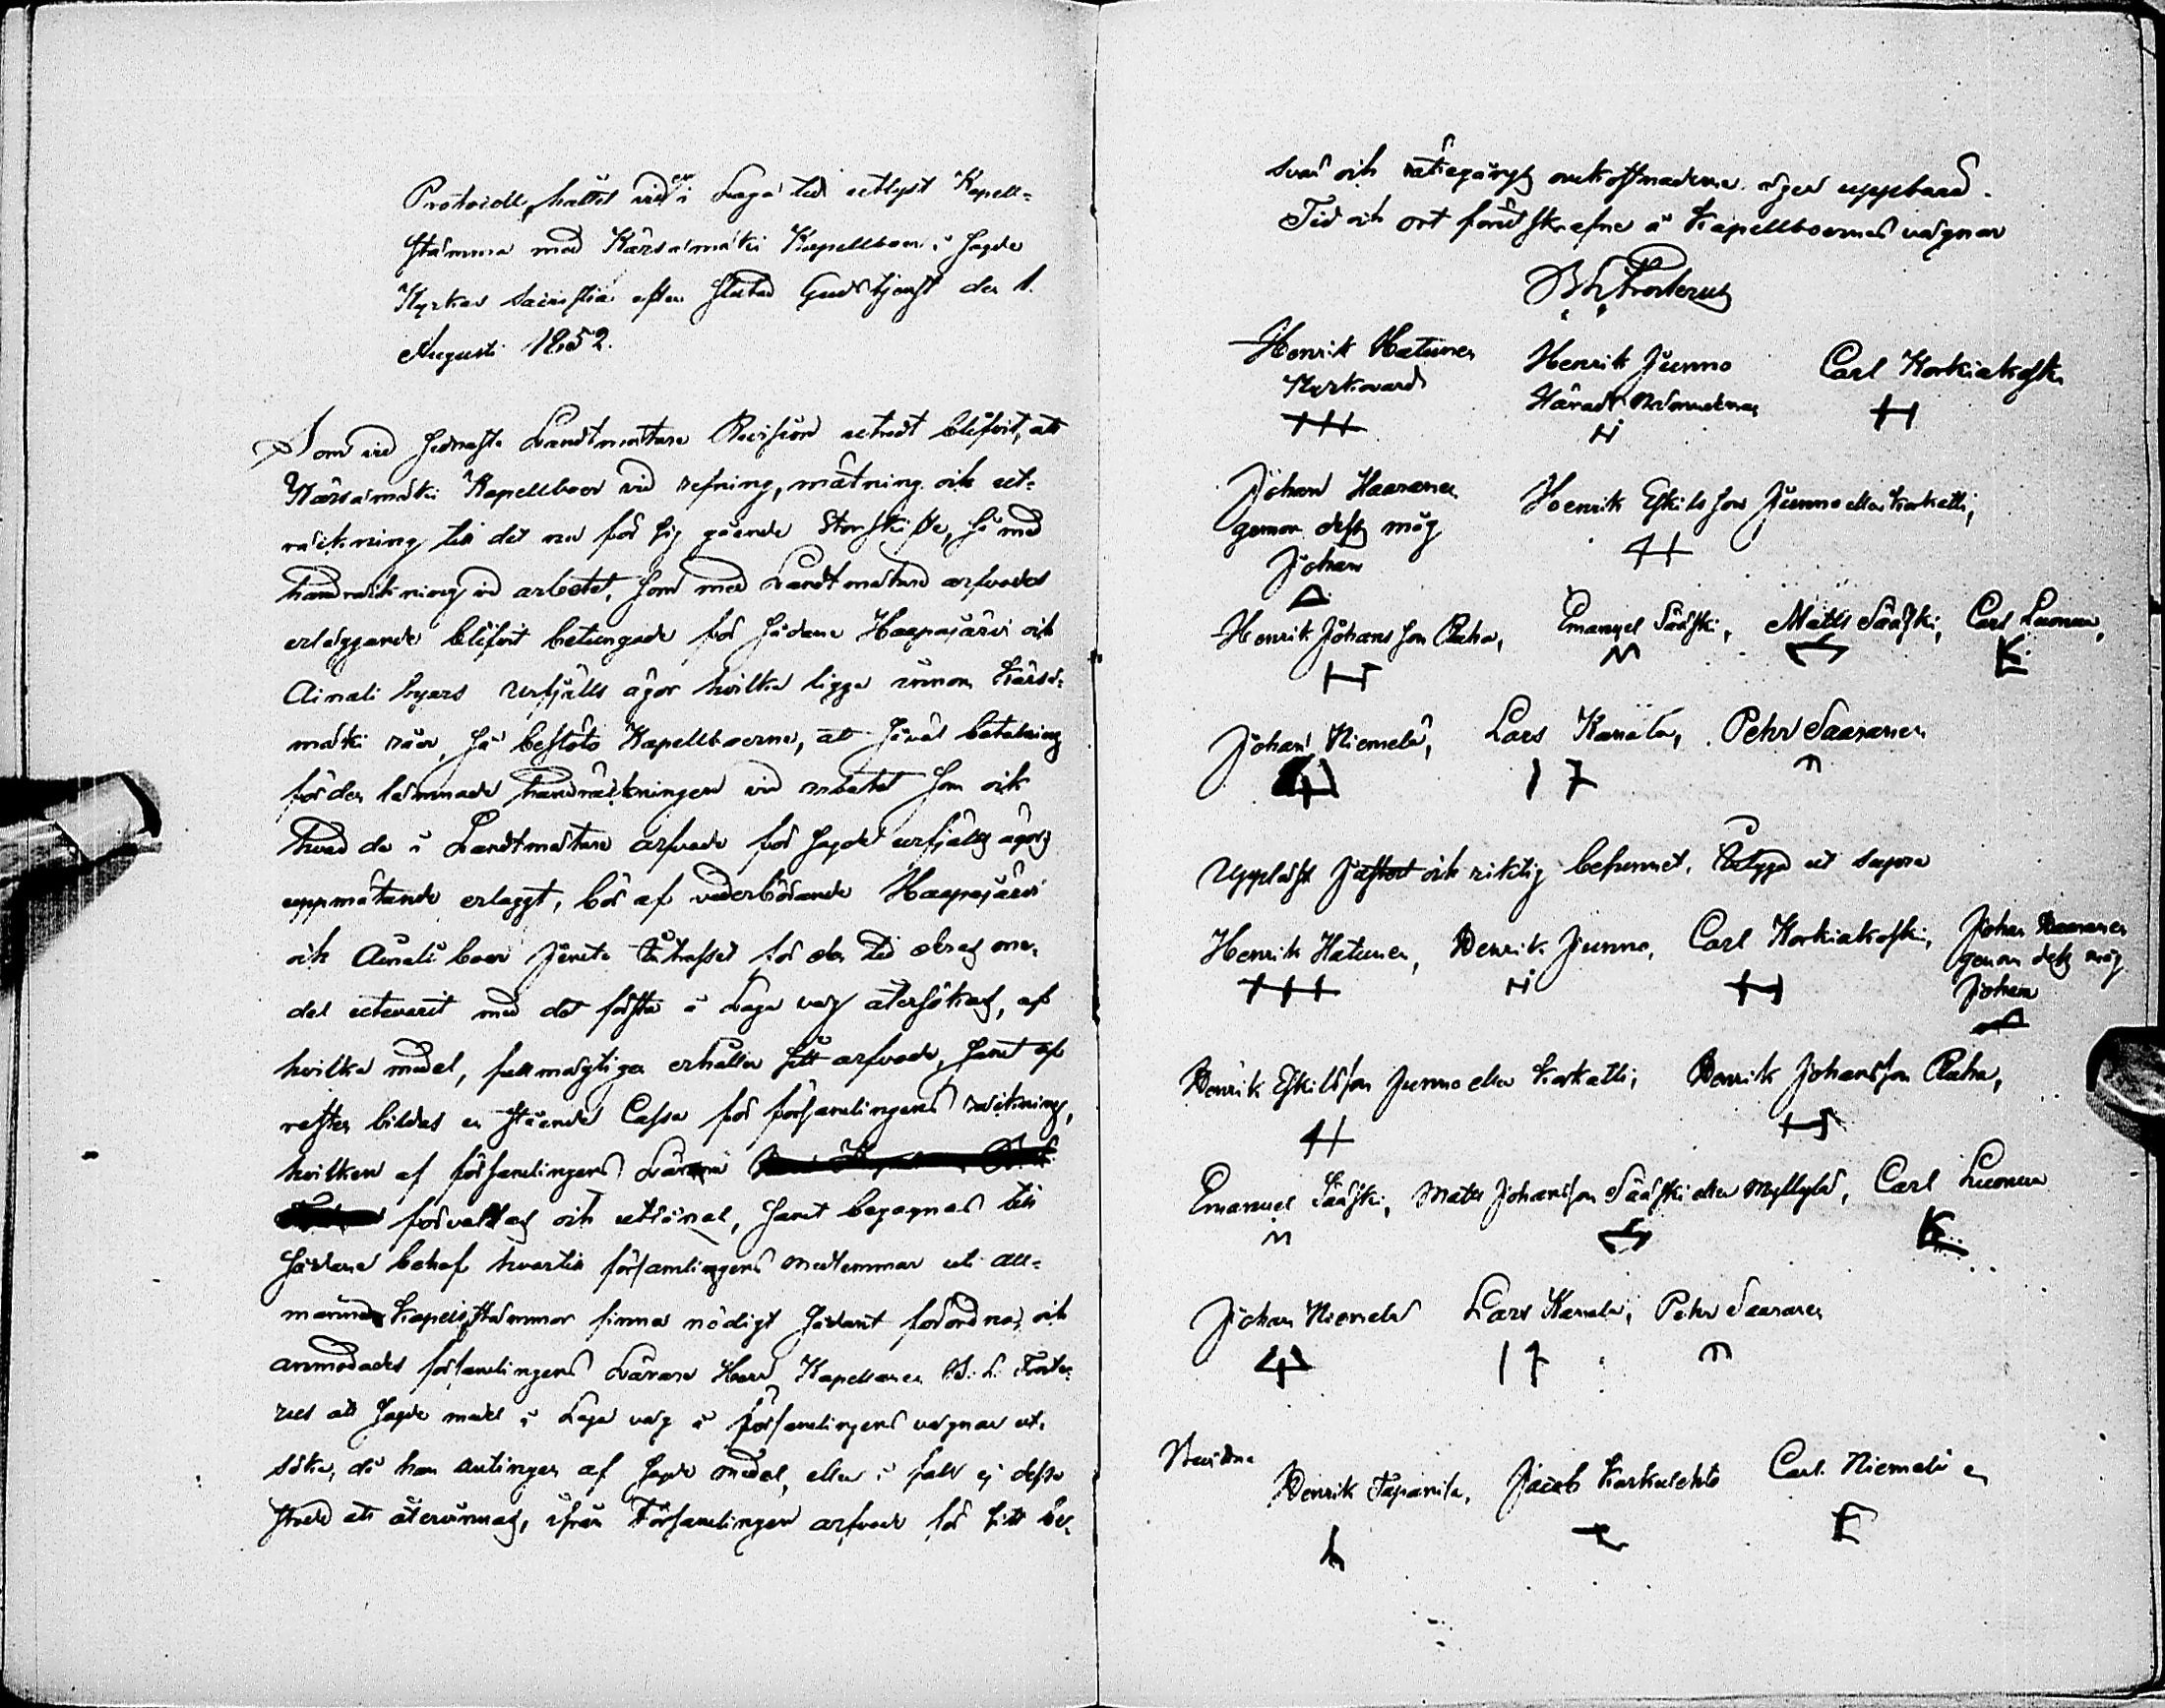 Protocoll, hållet vid en i Laga tid utlyst Kapell-
stämma med Kärsämäki Kapellboer i sagde
Kyrkas Sacristia efter slutad Gudstjenst den 1.
Augusti 1852.
Som vid sednaste Landtmätare Revision utredt blifvit, att
Kärsämäki Kapellboer vid refning, mätning och ut-
räckning till det nu för sig gående Storskifte, så med
handräckning vid arbetet, som med Landtmätare arfvodet
erläggande blifvit betungade för sådane Haapajärvi och
Ainali byars urfjälls ägor hvilka ligga innom Kärsä-
mäki råer, så beslöto Kapellboerne, att såväl betalning
för den lemnade handräckningen vid arbetet som ock
hvad de i Landtmätare arfvode för sagde urfjälls ägors
uppmätande erlaggt, bör af vederbörande Haapajärvi
och Ainali boer jemte Intresset för den tid deras me-
del utevarit med det första i Laga väg återsökas, af
hvilka medel, fullmägtigen erhåller sitt arfvode, samt af
resten bildas en stående Cassa för församlingens räckning,
hvilken af församlingens Lärare
förvaltas och utlånas, samt begagnas till
sådane behof hvartill församlingens medlemmar uti all-
männa Kapellstämmor finna nödigt sådant förordna, och
anmodades församlingens Lärare Herr Kapellanen B. L. Froste-
rus att sagde medel i Laga väg å församlingens vägnar ut-
söka, då han antingen af sagde medel, eller i fall ej dessa
skulle återvinnas, ifrån Församlingen arfvode för sitt be-
svär och rättegångs omkostnaderne äger uppbära.
Tid och ort förutskrefne å Kapellboernes vägnar
B L Frosterus
Henrik Hatunen Henrik Junno Carl Korkiakoski
Kyrkovärd Härads Nämndeman
Johan Haaranen Henrik Eskilsson Junno eller Korkatti,
genom dess måg
Johan
Henrik Johansson Raha, Emanuel Sääski, Matts Sääski, Carl Luonua,
Johan Niemelä, Lars Kanala, Pehr Saaranen
Uppläst justerat och riktig befunnet. Betyga ut supra
Henrik Hatunen, Henrik Junno, Carl Korkiakoski, Johan Haaranen
genom dess måg
Johan
Henrik Eskilsson Junno eller Korkatti, Henrik Johansson Raha,
Emanuel Sääski, Matts Johansson Sääski eller Myllylä, Carl Luonua
Johan Niemelä Lars Kanala, Pehr Saaranen
Bevittna
Henrik Tapanila, Jacob Karkulehto Carl Niemelä